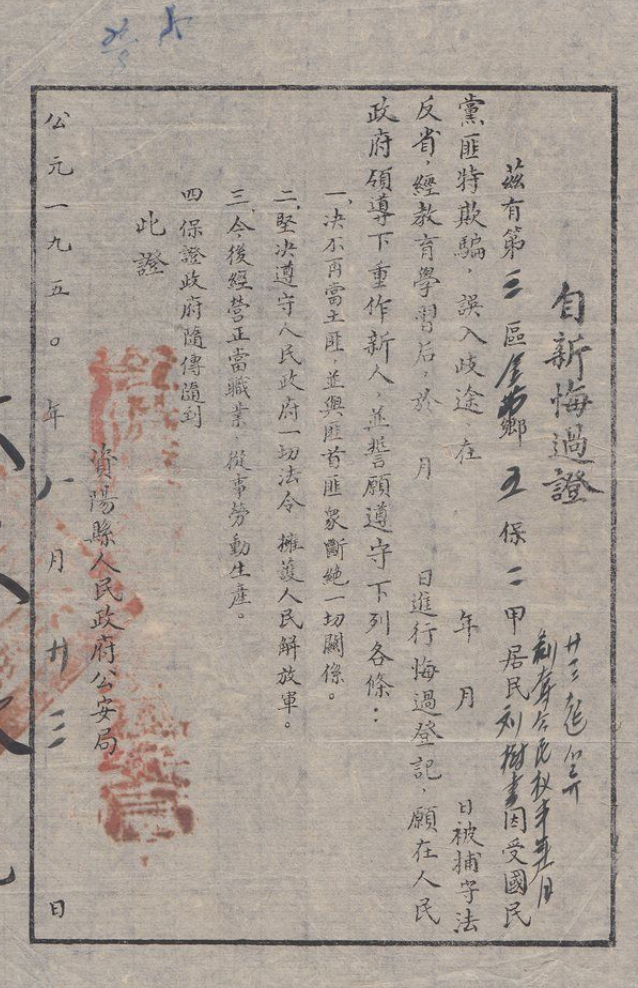 自新悔過證
茲有第三區金㘵鄉五保二甲居民刘樹書因受國民
黨匪特欺騙，誤入歧途，在 年 月 日被捕守法
反省，經教育學習后，於 月 日進行悔過登記，願在人民
政府領導下重作新人，並誓願遵守下列各條：
一、決不再當土匪，並與匪首匪衆斷絶一切關係。
二、堅決遵守人民政府一切法令 擁護人民解放軍。
三、今後經營正當職業，從事勞動生產。
四 保證政府隨傳隨到
此證
資陽縣人民政府公安局
公元一九五〇年八月廿三日